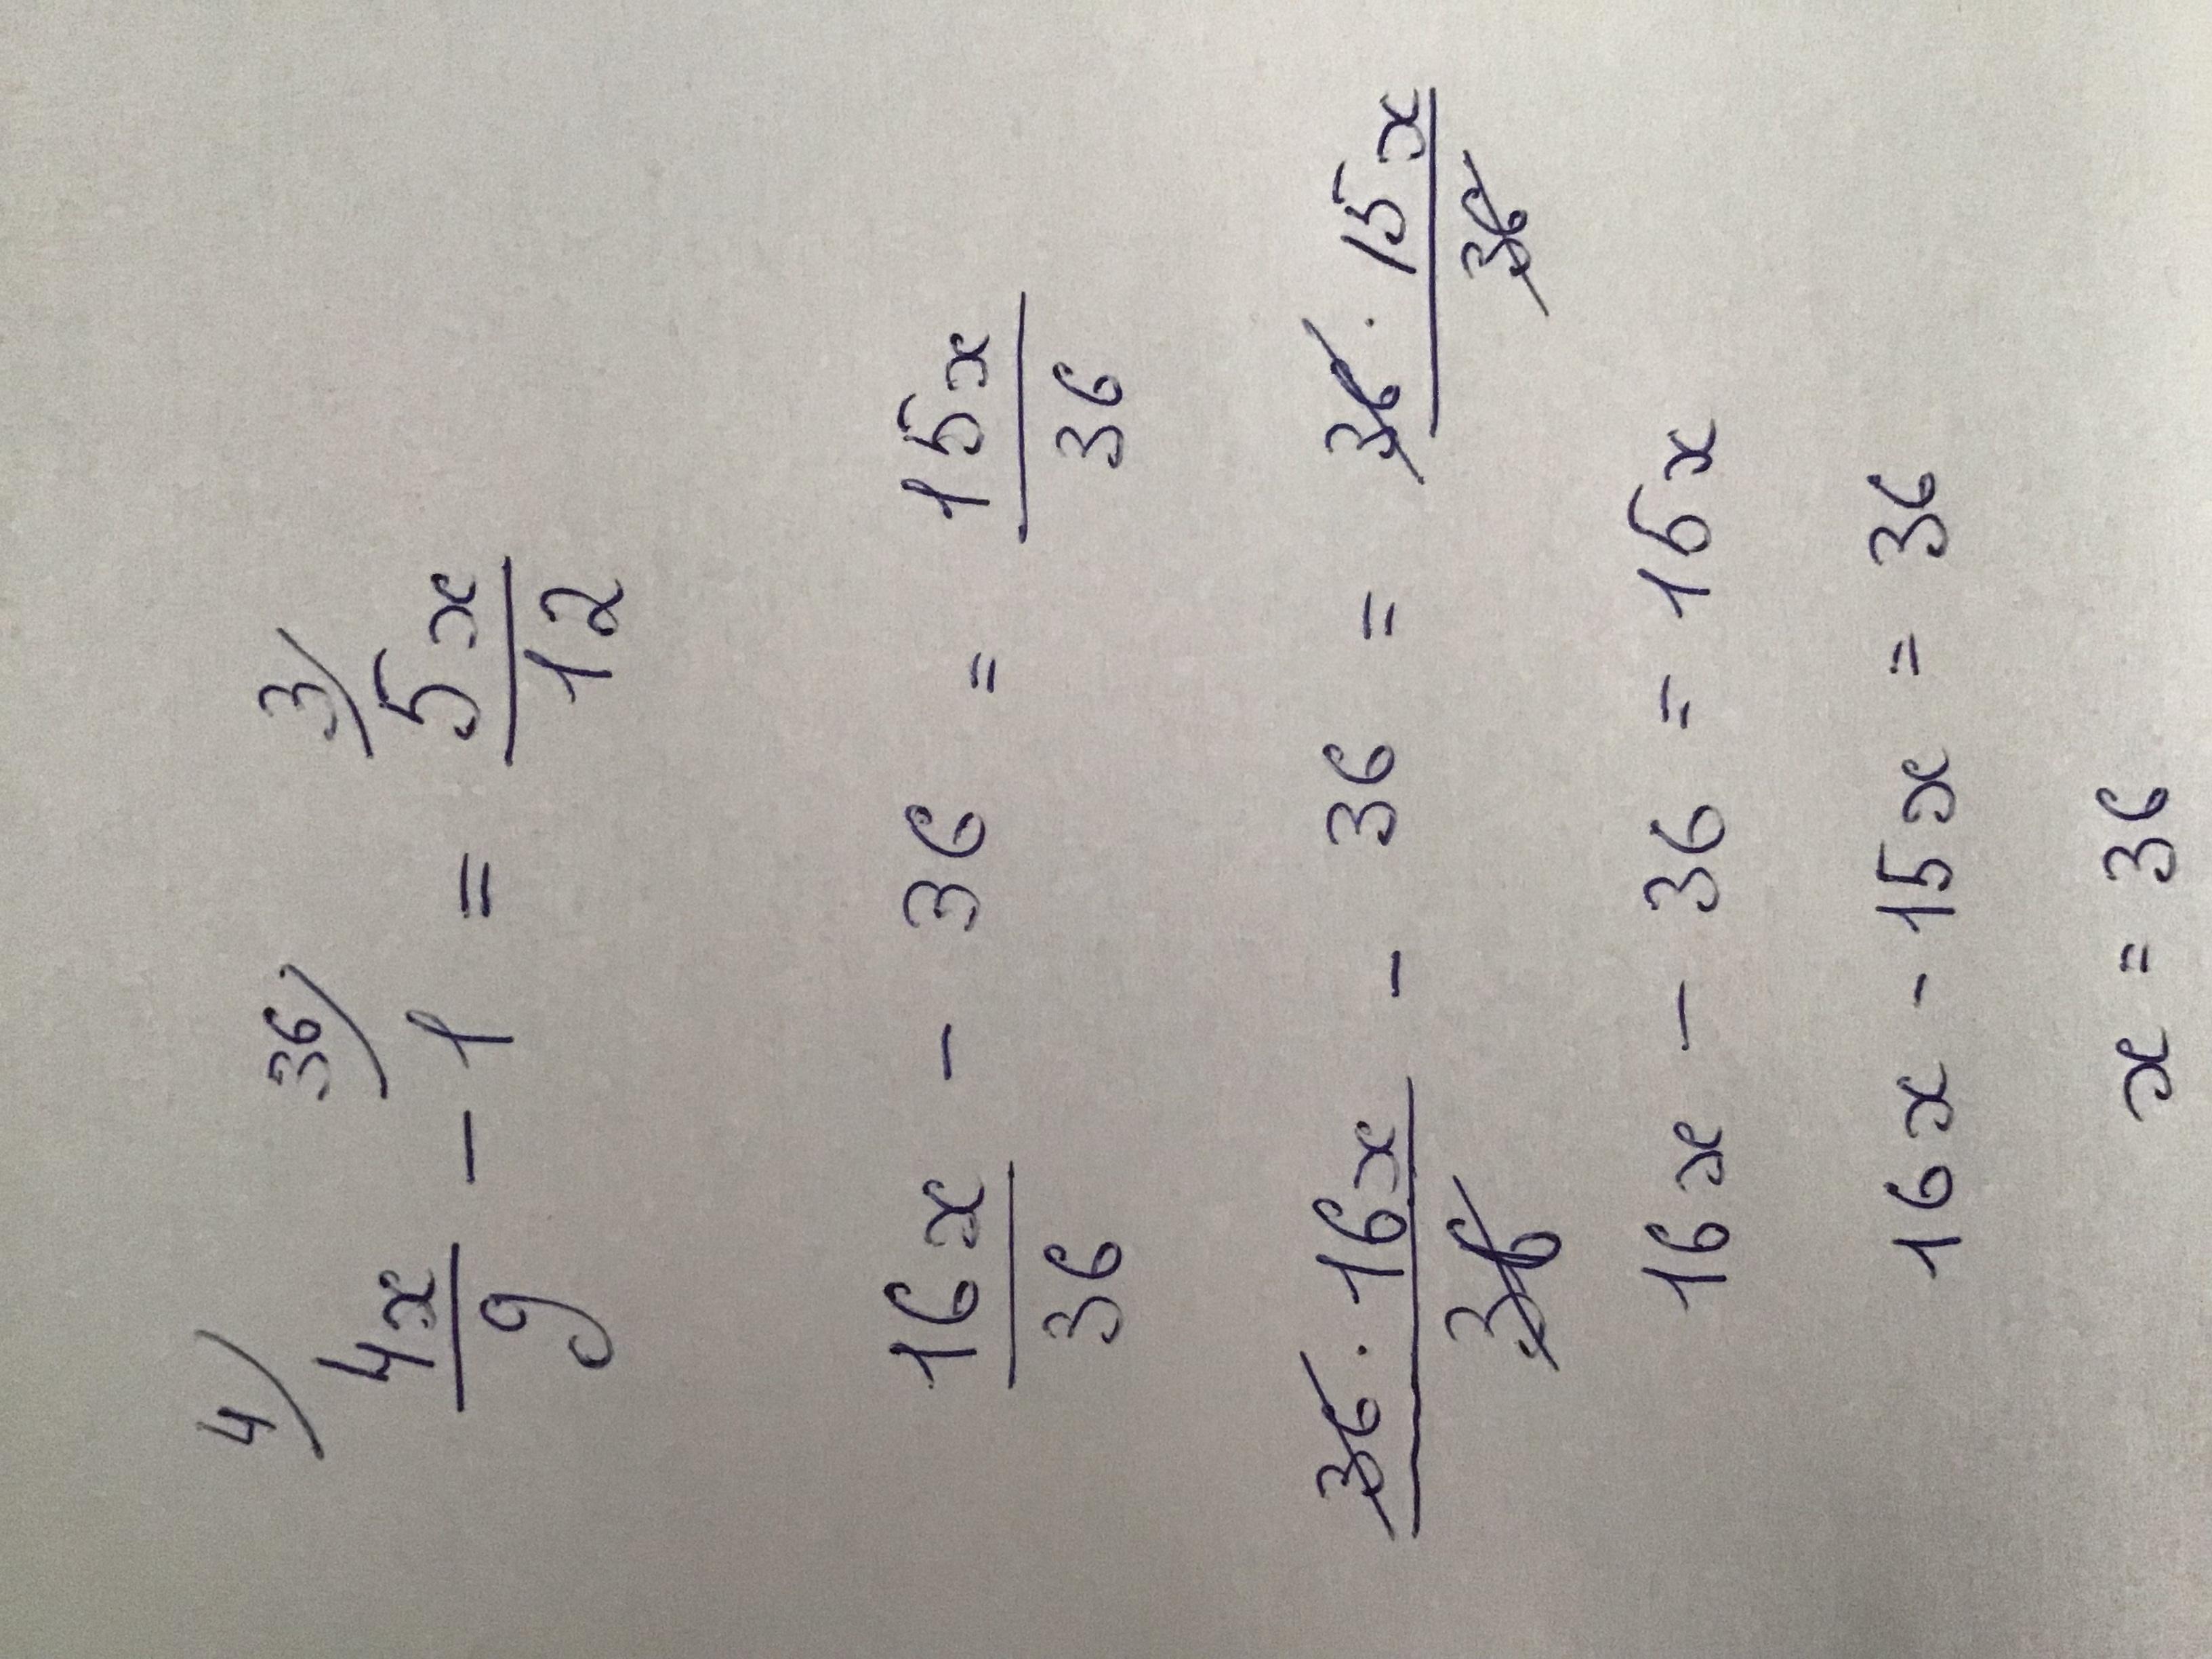 4) 36) 3)
4x/9 - 1 = 5x/12
16x/36 - 36 = 15x/36
36 · 16x/36 - 36 = 36 · 15x/36
16x - 36 = 15x
16x - 15x = 36
x = 36